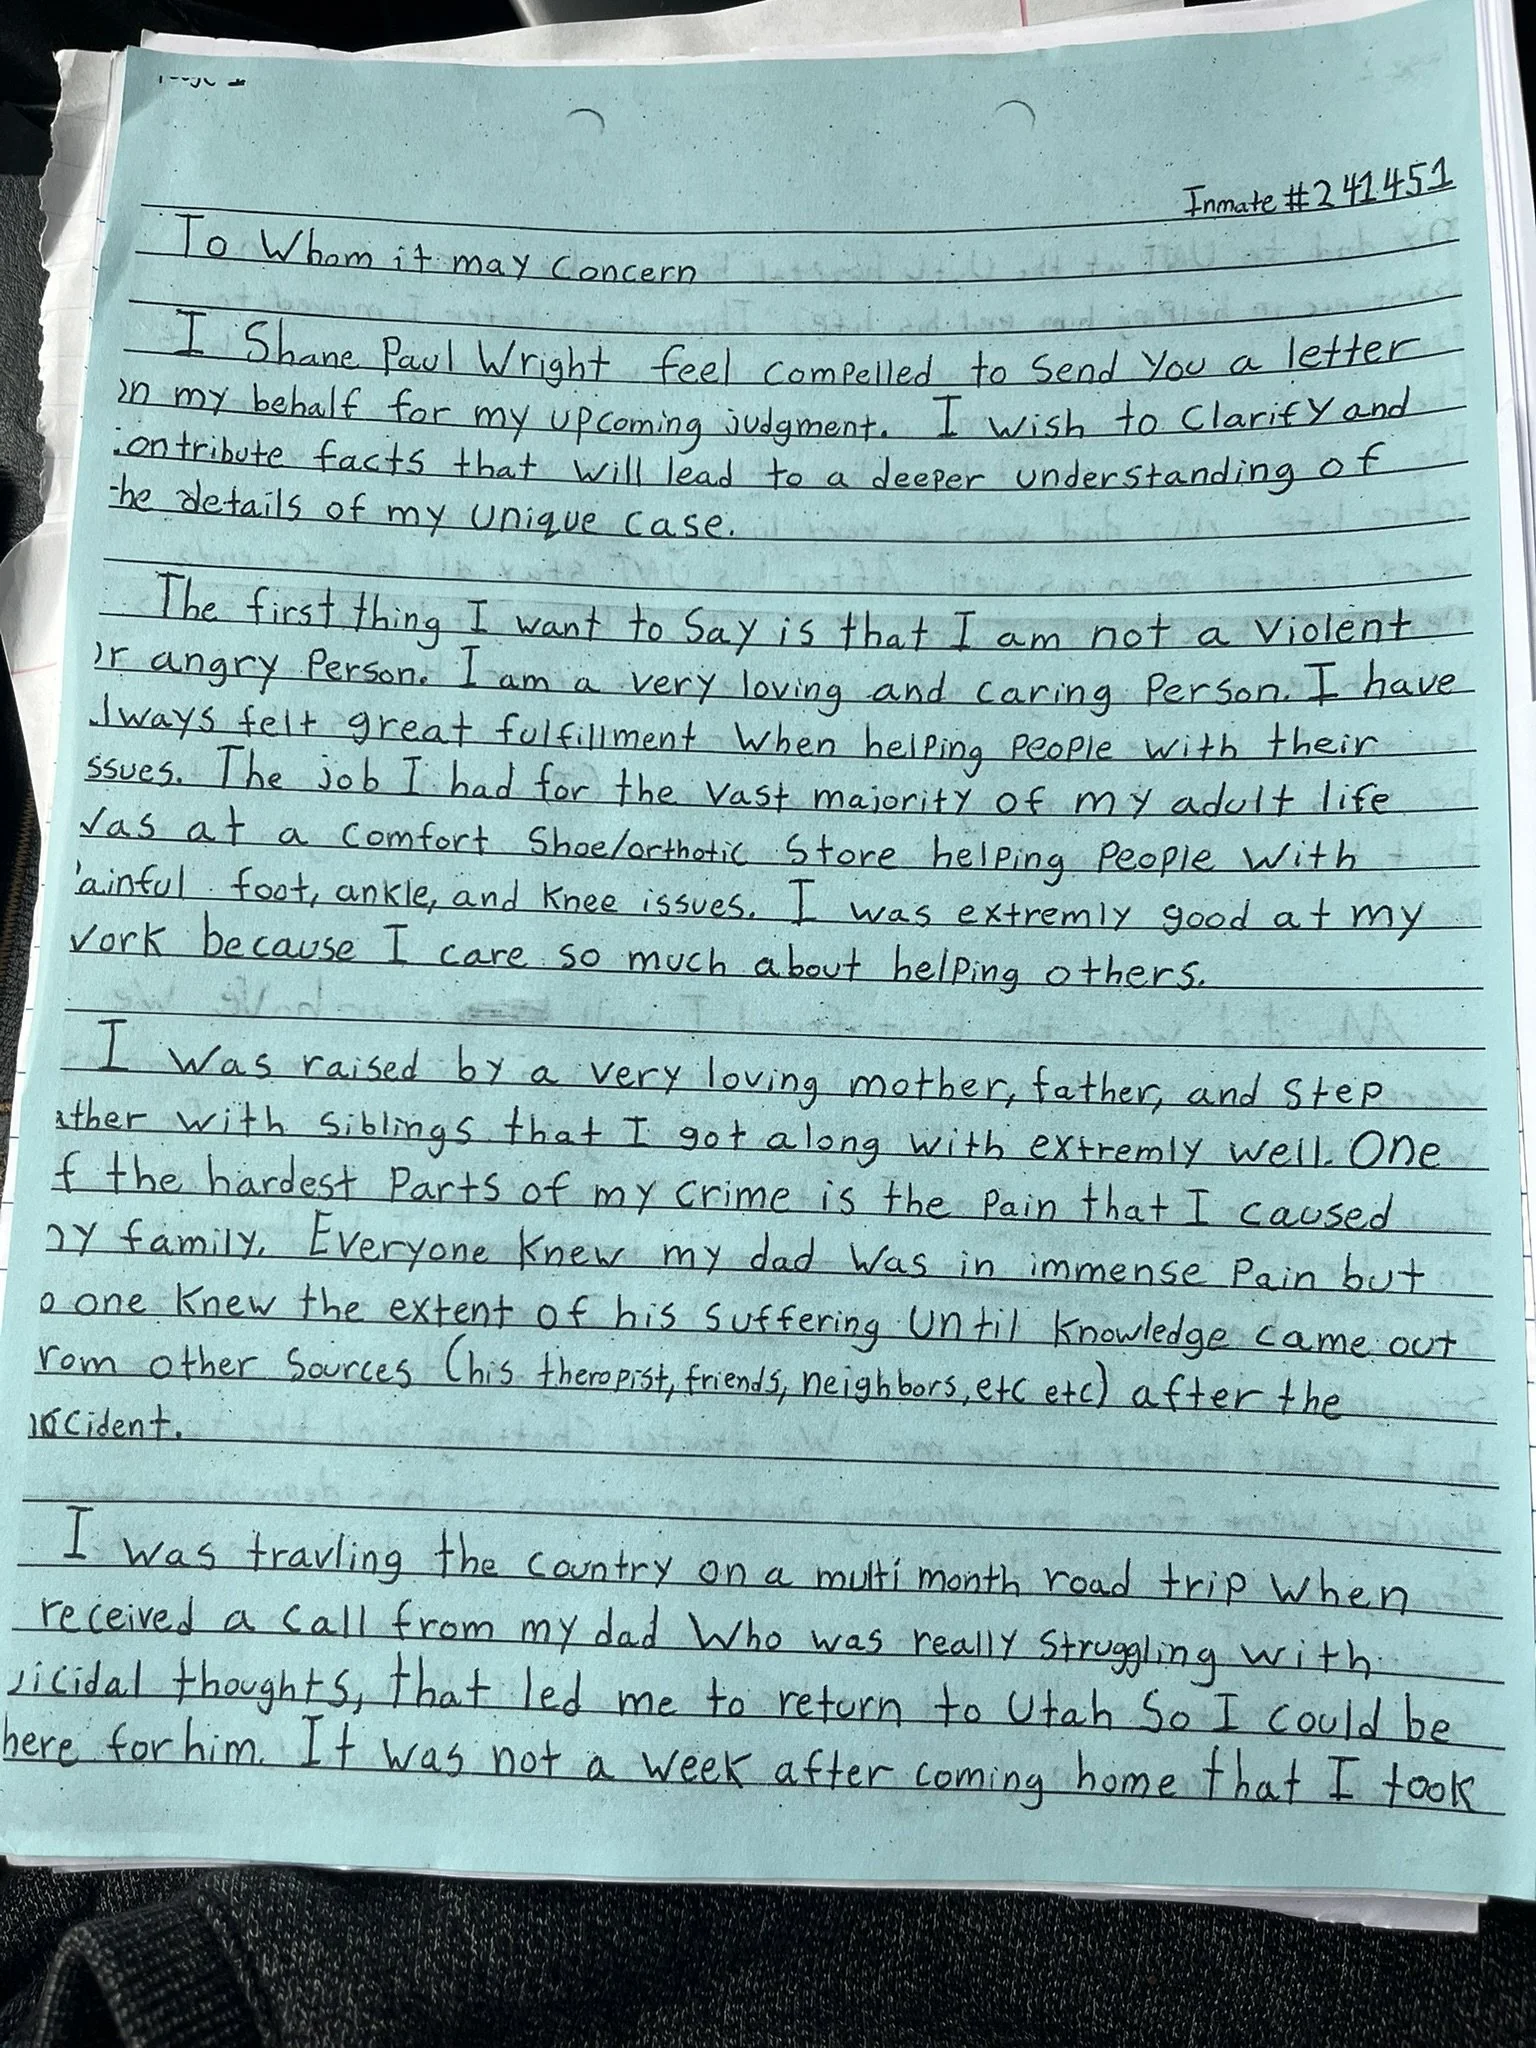 Inmate #241451
To Whom it may Concern
I Shane Paul Wright feel compelled to Send You a letter
on my behalf for my upcoming judgment. I wish to Clarify and
contribute facts that will lead to a deeper understanding of
the details of my unique case.
The first thing I want to Say is that I am not a violent
or angry Person. I am a very loving and caring Person. I have
always felt great fulfillment when helping people with their
issues. The job I had for the vast majority of my adult life
was at a comfort Shoe/orthotic Store helping People with
Painful foot, ankle, and Knee issues. I was extremly good at my
work because I care so much about helping others.
I was raised by a very loving mother, father, and step
father with siblings that I got along with extremly well. One
of the hardest Parts of my crime is the Pain that I caused
my family. Everyone Knew my dad was in immense Pain but
no one Knew the extent of his suffering Until Knowledge came out
from other sources (his theropist, friends, neighbors, etc etc) after the
incident.
I was travling the country on a multi month road trip when
received a call from my dad Who was really struggling with
suicidal thoughts, that led me to return to Utah So I could be
here for him. It was not a week after coming home that I took